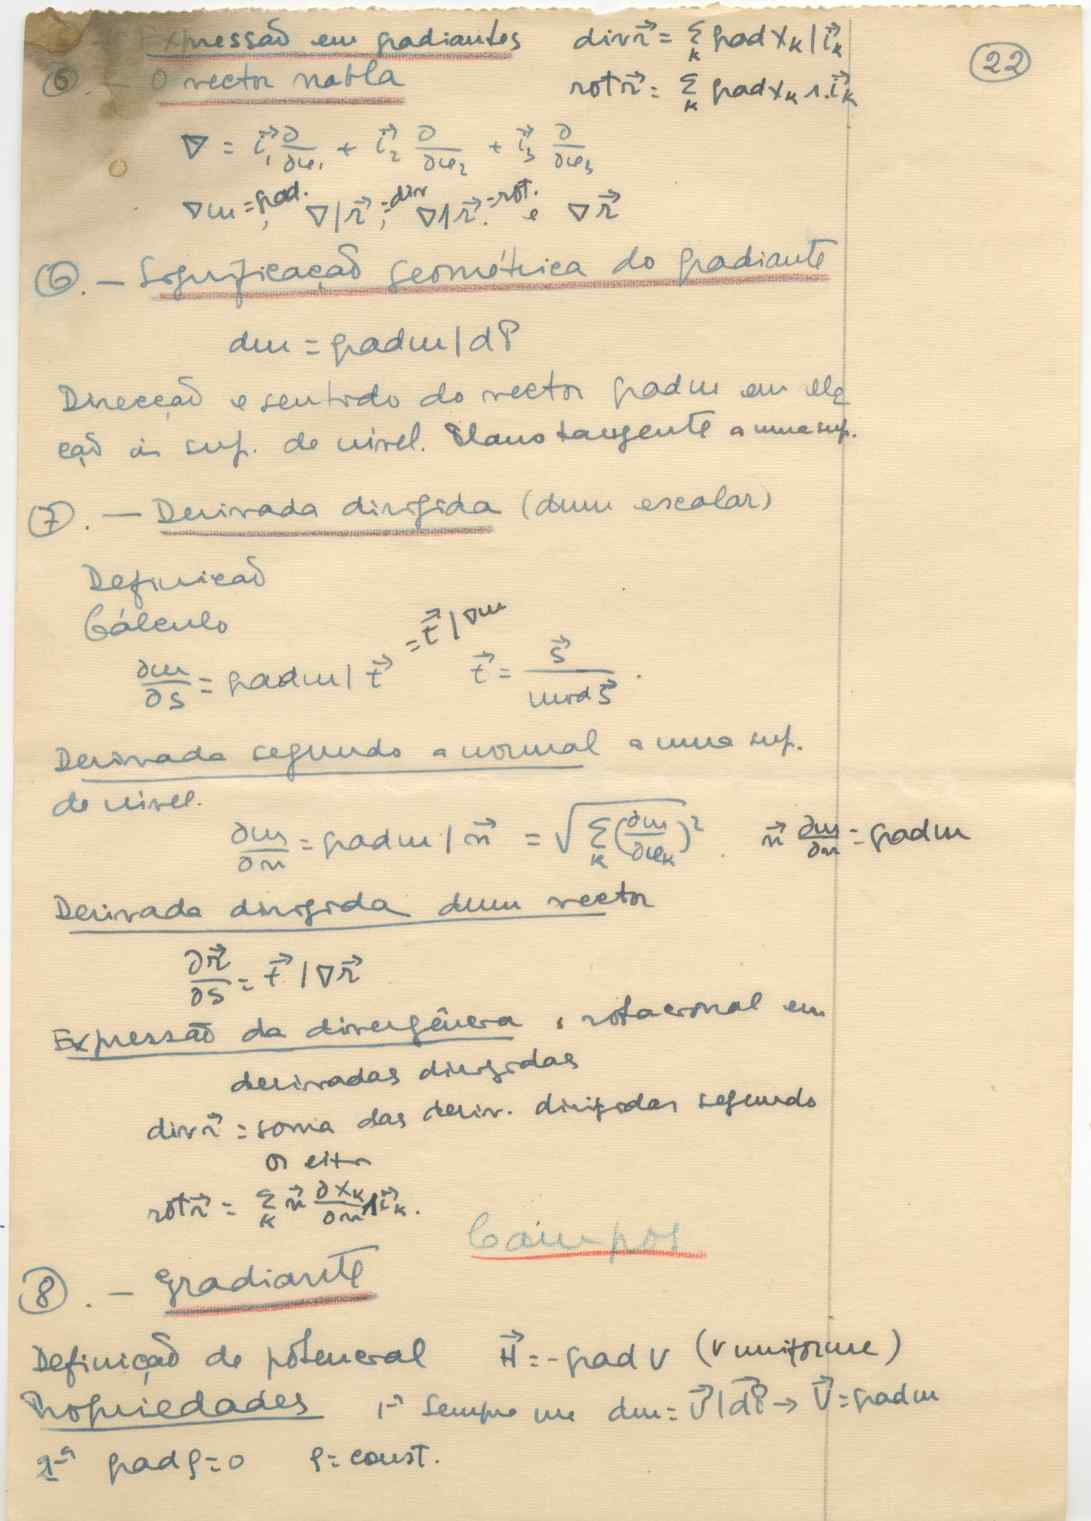 Expressão em gradiantes div r⃗ = Σ_k grad X_k | i⃗_k
22
5. — O vector nabla rot r⃗ = Σ_k grad x_k ∧ i⃗_k
∇ = i⃗₁ ∂/∂x₁ + i⃗₂ ∂/∂x₂ + i⃗₃ ∂/∂x₃
∇m = grad. , ∇|r⃗ = div , ∇∧r⃗ = rot. e ∇r⃗
6. — Significação geométrica do gradiante
dm = grad m | dP
Direcção e sentido do vector grad m em
ção às sup. de nivel. Plano tangente a uma sup.
7. — Derivada dirigida (dum escalar)
Definicão
Cálculo
∂m/∂s = grad m | t⃗ = t⃗ | ∇m t⃗ = s⃗ / mod s⃗ .
Derivada segundo a normal a uma sup.
de nivel.
∂m/∂n = grad m | n⃗ = √(Σ_k (∂m/∂x_k)²) . n⃗ ∂m/∂n = grad m
Derivada dirigida dum vector
∂r⃗/∂s = t⃗ | ∇r⃗
Expressão da divergência, rotacional em
derivadas dirigidas
div r⃗ = soma das deriv. dirigidas segundo
os eixos
rot r⃗ = Σ_k n⃗ ∂X_k/∂n ∧ i⃗_k.
Campos
8. — Gradiante
Definição de potencial H⃗ = - grad V (V uniforme)
Propriedades 1ª Sempre que dm = V⃗ | dP⃗ → V⃗ = grad m
2ª grad ρ = 0 ρ = const.